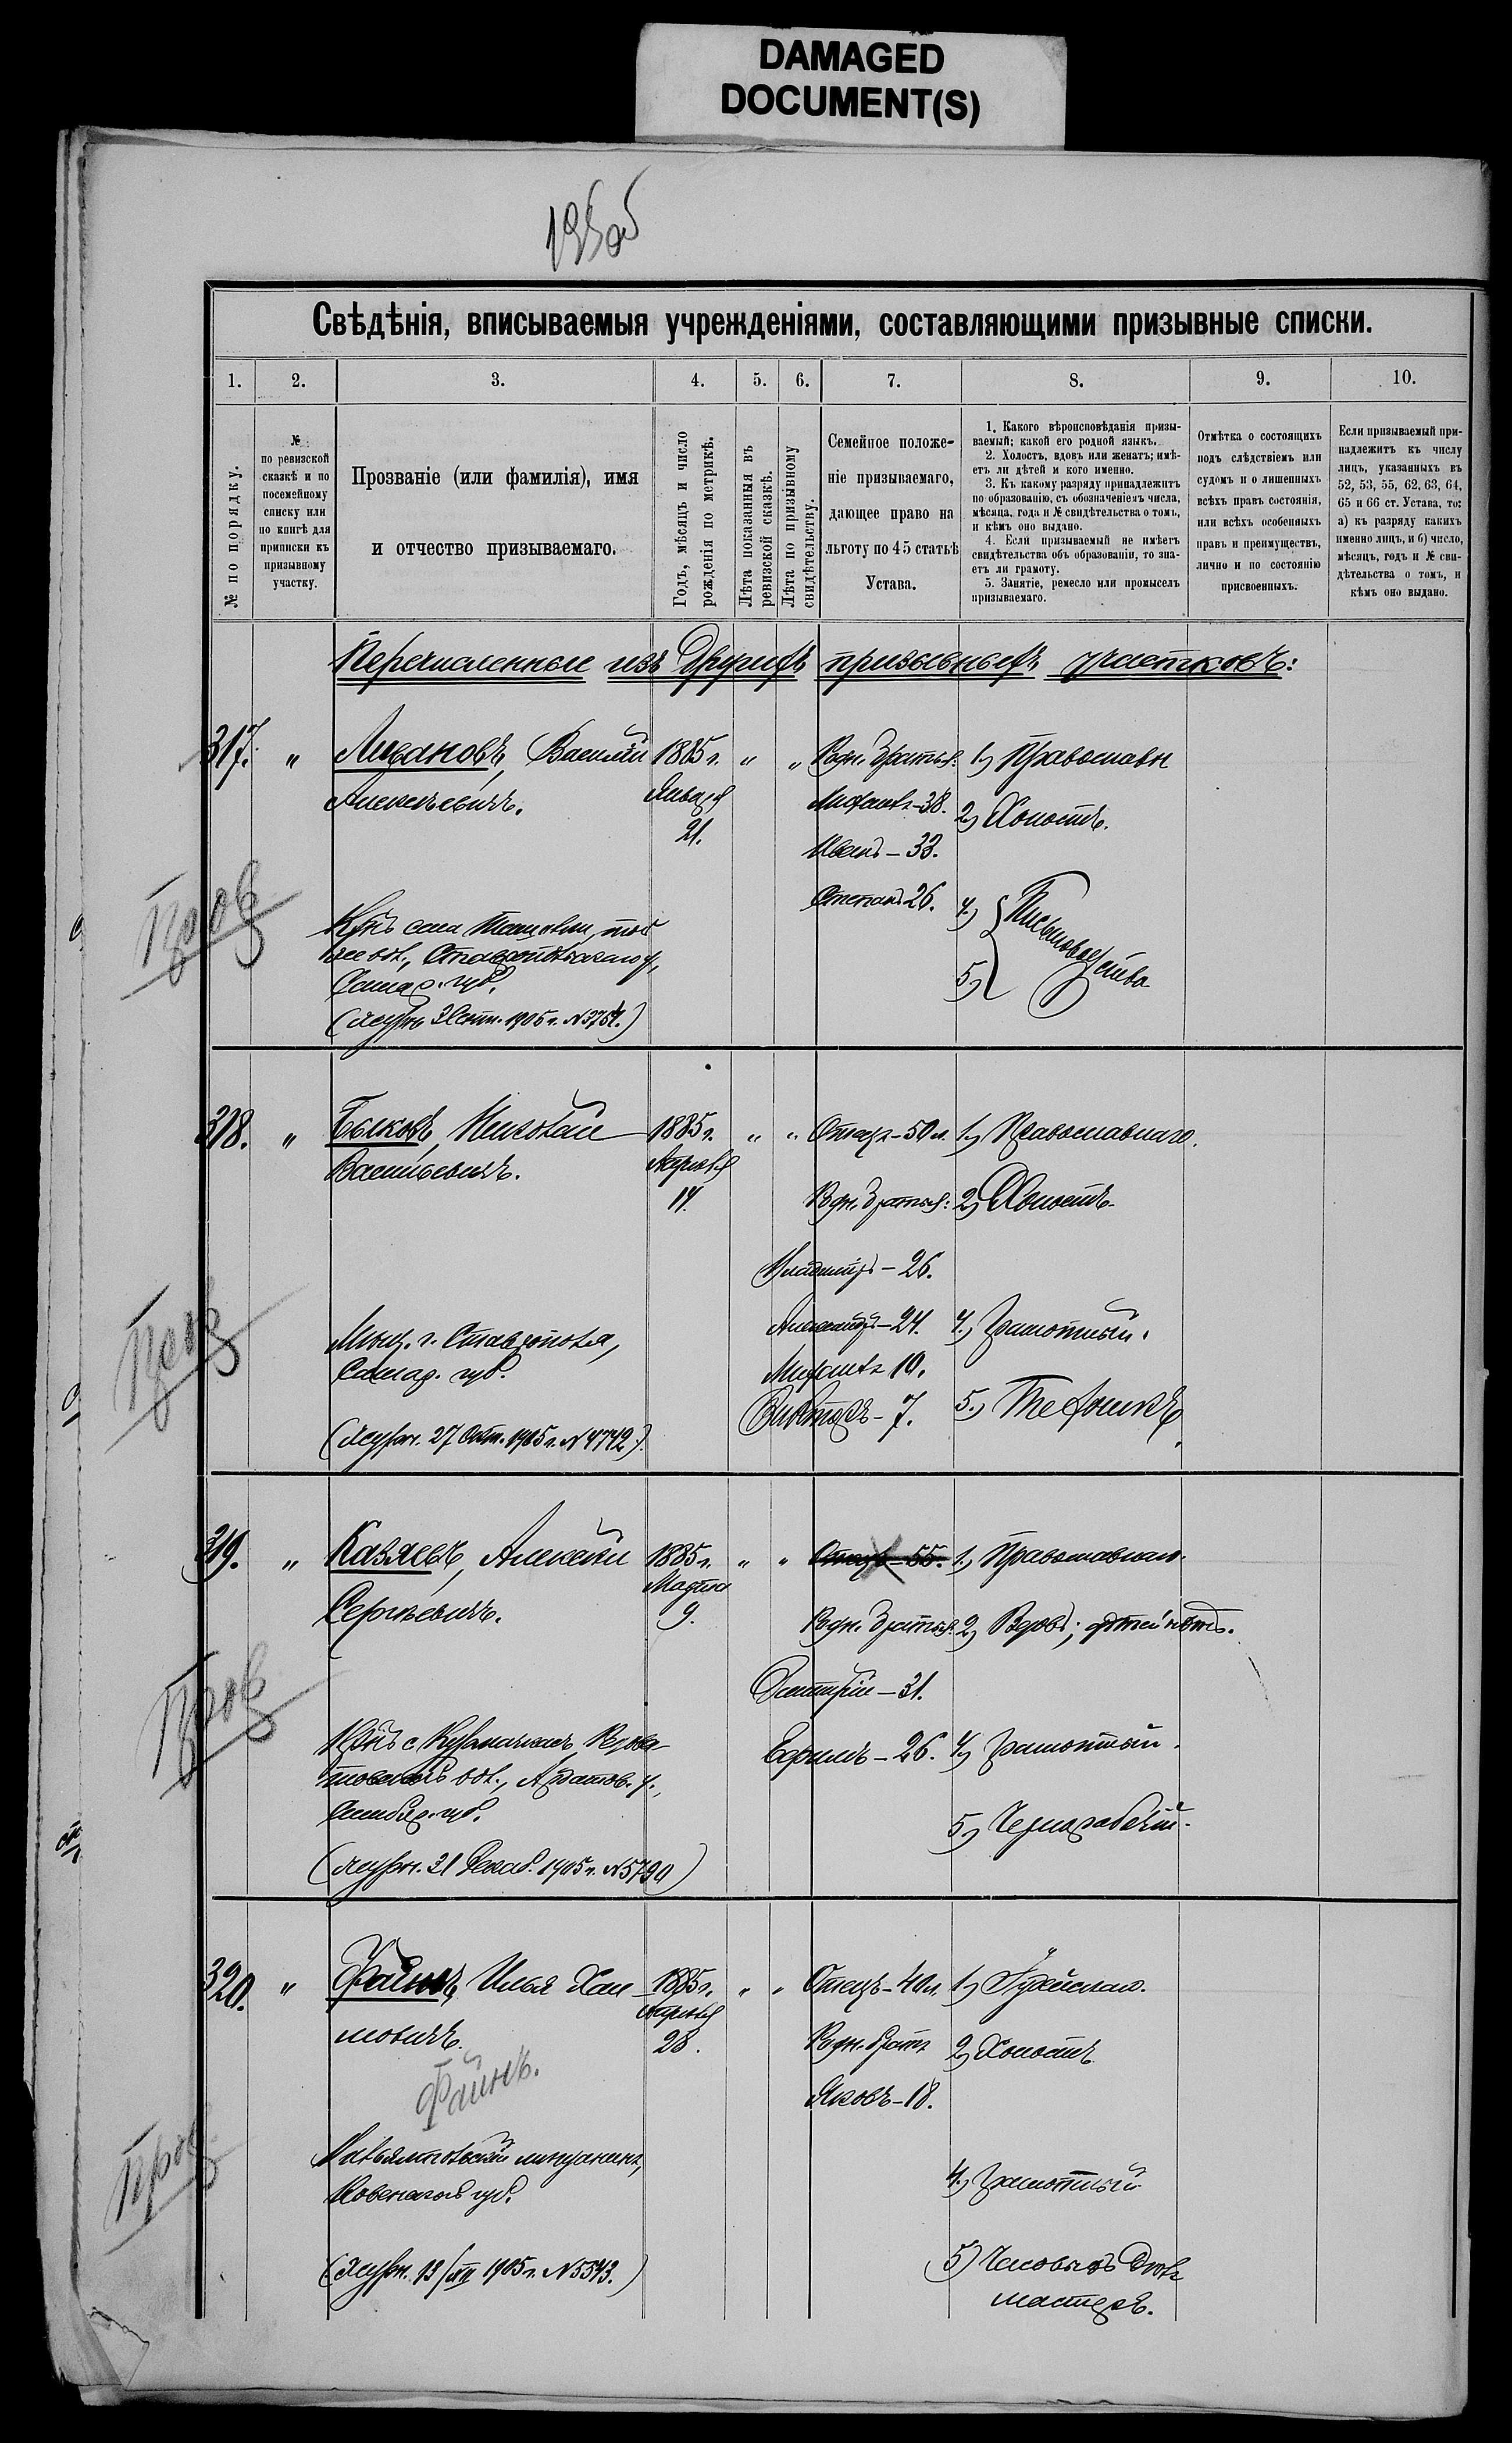 DAMAGED
DOCUMENT(S)
195 об
Свѣдѣнія, вписываемыя учрежденіями, составляющими призывные списки.
1. 2. 3. 4. 5. 6. 7. 8. 9. 10.
№ по порядку.
№
по ревизской
сказкѣ и по
посемейному
списку или
по книгѣ для
приписки къ
призывному
участку.
Прозваніе (или фамилія), имя
и отчество призываемаго.
Годъ, мѣсяцъ и число
рожденія по метрикѣ.
Лѣта показанныя въ
ревизской сказкѣ.
Лѣта по призывному
свидѣтельству.
Семейное положе-
ніе призываемаго,
дающее право на
льготу по 45 статьѣ
Устава.
1. Какого вѣроисповѣданія призы-
ваемый; какой его родной языкъ.
2. Холостъ, вдовъ или женатъ; имѣ-
етъ ли дѣтей и кого именно.
3. Къ какому разряду принадлежитъ
по образованію, съ обозначеніемъ числа,
мѣсяца, года и № свидѣтельства о томъ,
и кѣмъ оно выдано.
4. Если призываемый не имѣетъ
свидѣтельства объ образованіи, то зна-
етъ ли грамоту.
5. Занятіе, ремесло или промыселъ
призываемаго.
Отмѣтка о состоящихъ
подъ слѣдствіемъ или
судомъ и о лишенныхъ
всѣхъ правъ состоянія,
или всѣхъ особенныхъ
правъ и преимуществъ,
лично и по состоянію
присвоенныхъ.
Если призываемый при-
надлежитъ къ числу
лицъ, указанныхъ въ
52, 53, 55, 62, 63, 64,
65 и 66 ст. Устава, то:
а) къ разряду какихъ
именно лицъ, и б) число,
мѣсяцъ, годъ и № сви-
дѣтельства о томъ, и
кѣмъ оно выдано.
Перечисленные изъ другихъ призывныхъ участковъ:
317. " Ливановъ, Василій 1885 г. " " Родн. братья: 1) Православн
Алексѣевичъ. Января Михаилъ-38. 2) Холостъ.
21. Иванъ-33.
Степанъ 26. 4)
5) Письмоводства
Кр-нъ села той
же вол., Ставропольскаго у,
Самар. губ.
(Журн. 3 Сент. 1905 г. N 3754.)
Пров
318. " Быковъ, Николай 1885 г. " " Отецъ-50 л. 1) Православнаго.
Васильевичъ. Апрѣля
14. Родн. братья: 2) Холостъ.
Владиміръ-26.
Александръ-24. 4) Грамотный.
Михаилъ 10.
Викторъ-7. 5)
Мѣщ. г. Ставрополя,
Самар. губ.
(Журн. 27 Окт. 1905 г. N 4742).
Пров
319. " Казяевъ, Алексѣй 1885 г. " " Отецъ-55. 1) Православнаго.
Сергѣевичъ. Марта
9. Родн. братья: 2) Вдовъ; дѣтей нѣтъ.
Дмитрій-31.
Ефимъ-26. 4) Грамотный.
5) Чернорабочій.
Кр-нъ с.
вол., Ардатов. у.,
Симбир. губ.
(Журн. 21 Декаб. 1905 г. N 5790)
Пров
320. " Файнъ, Илья Хаи- 1885 г. " " Отецъ-40 л. 1) Іудейскаго.
мовичъ. Апрѣля
28. Родн. братъ 2) Холостъ
Яковъ-18.
Файнъ.
мѣщанинъ,
Ковенской губ.
4) Грамотный
5) Часовыхъ дѣлъ
мастеръ.
(Журн. 13/XII 1905 г. N 5543.)
Пров